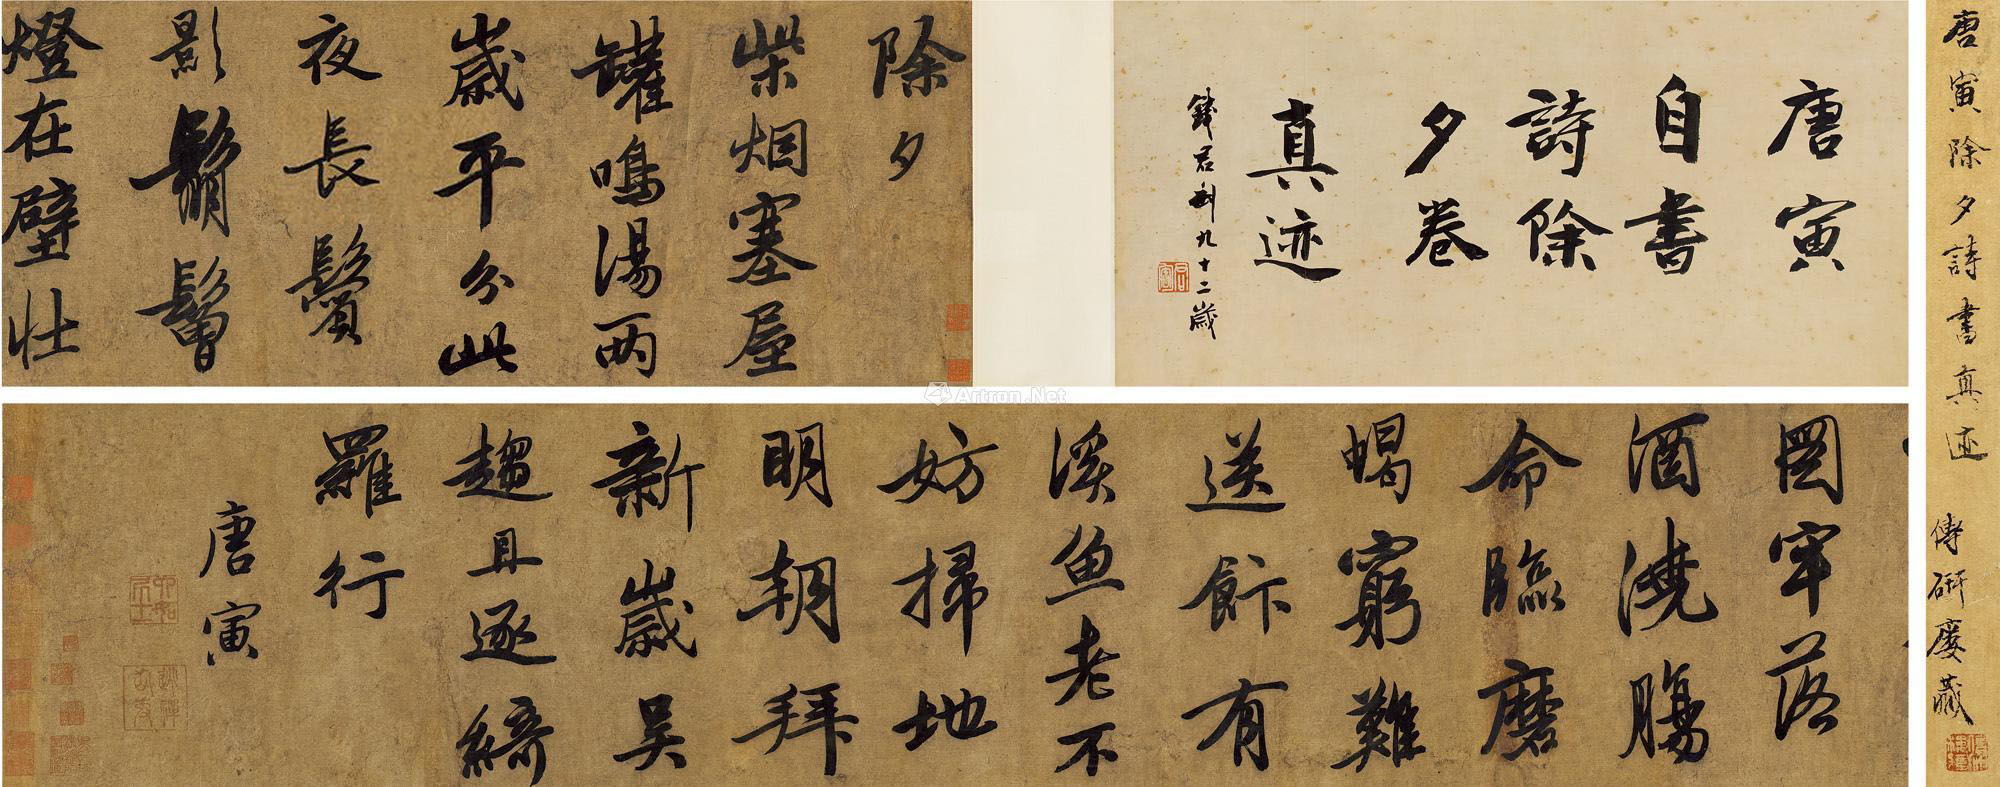 唐寅除夕詩書真迹
傅研廎藏
唐寅
自書
詩除
夕卷
真迹
錢君匋九十二歲
除夕
柴烟塞屋
罐鳴湯兩
歲平分此
夜長鬢
影鬅鬙
燈在壁壮
圖牢落
酒澆腸
命臨磨
蝎窮難
送飰有
溪魚老不
妨掃地
明朝拜
新歲吴
趨且逐綺
羅行
唐寅
Artron.Net